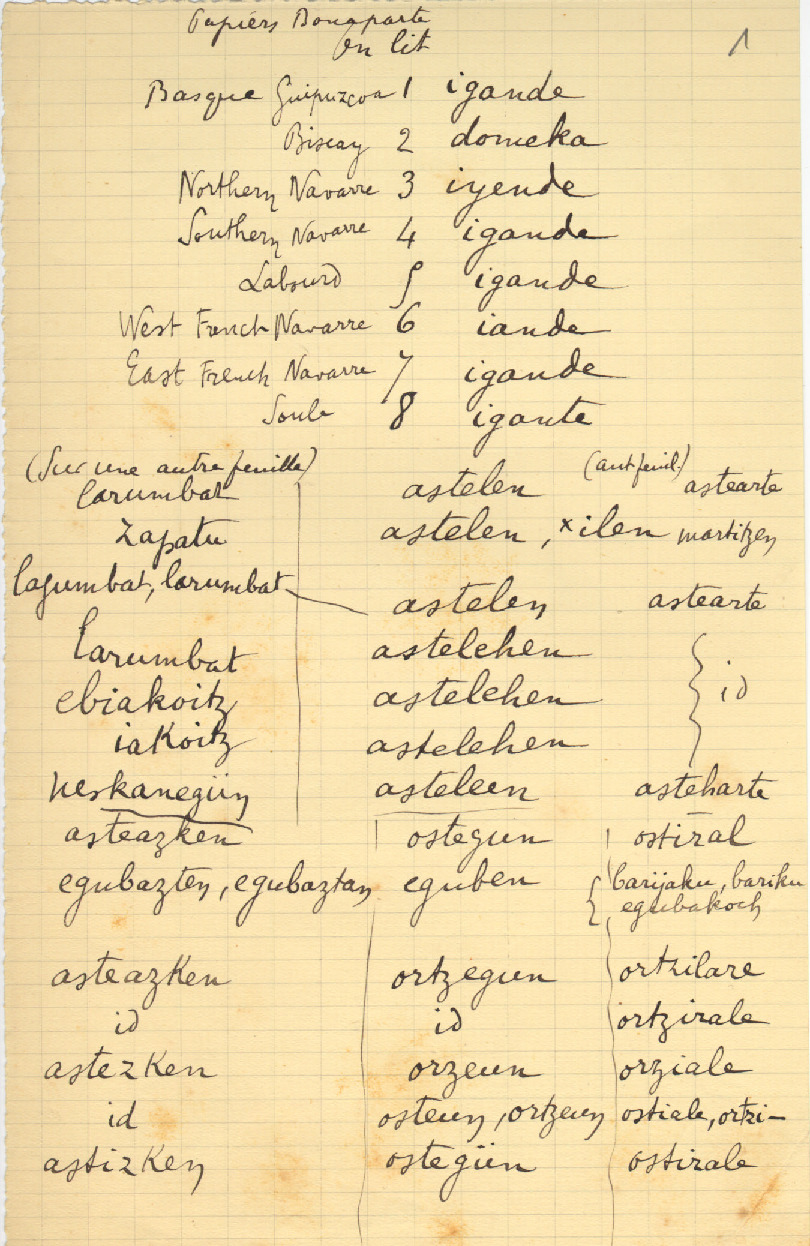 Papiers Bonaparte
on lit
1
Basque Guipuzcoa 1 igande
Biscay 2 domeka
Northern Navarre 3 iyende
Southern Navarre 4 igande
Labourd 5 igande
West French Navarre 6 iande
East French Navarre 7 igande
Soule 8 igante
(sur une autre feuille) (aut feuil.)
larumbat astelen astearte
zapatu astelen, *ilen martitzen
lagumbat, larumbat astelen astearte
larumbat astelehen
ebiakoitz astelehen id
iakoitz astelehen
neskanegün asteleen asteharte
asteazken ostegun ostiral
egubazten, egubaztan eguben barijaku, bariku
egubakoch
asteazken ortzegun ortzilare
id id ortzirale
astezken orzeun orziale
id osteun, ortzeun ostiale, ortzi-
astizken ostegün ostirale